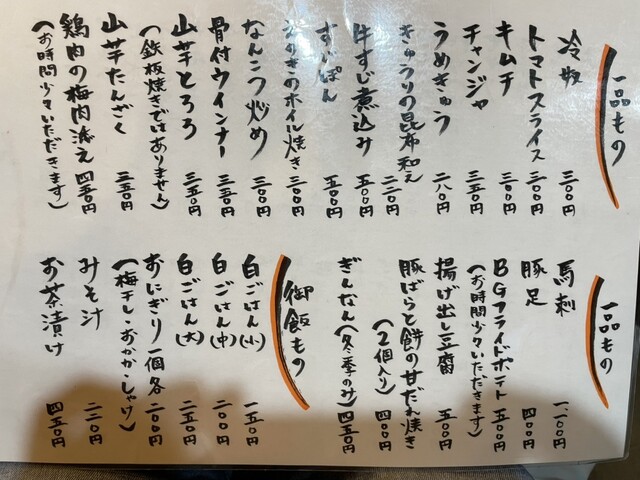 一品もの
冷奴 三〇〇円
トマトスライス 三〇〇円
キムチ 三〇〇円
チャンジャ 三五〇円
うめきゅう 二八〇円
きゅうりの昆布和え 二二〇円
牛すじ煮込み 五〇〇円
すじぽん 五〇〇円
えのきのホイル焼き 三〇〇円
なんこつ炒め 三〇〇円
骨付ウインナー 三五〇円
山芋とろろ 三五〇円
(鉄板焼きではありません)
山芋たんざく 三五〇円
鶏肉の梅肉添え 四五〇円
(お時間少々いただきます)
一品もの
馬刺 一、一〇〇円
豚足 四〇〇円
BGフライドポテト 五〇〇円
(お時間少々いただきます)
揚げ出し豆腐 五〇〇円
豚ばらと餅の甘だれ焼き
(2個入り) 四〇〇円
ぎんなん(冬季のみ) 四五〇円
御飯もの
白ごはん(小) 一五〇円
白ごはん(中) 二〇〇円
白ごはん(大) 二五〇円
おにぎり一個各 二〇〇円
(梅干し・おかか・しゃけ)
みそ汁 二二〇円
お茶漬け 四五〇円